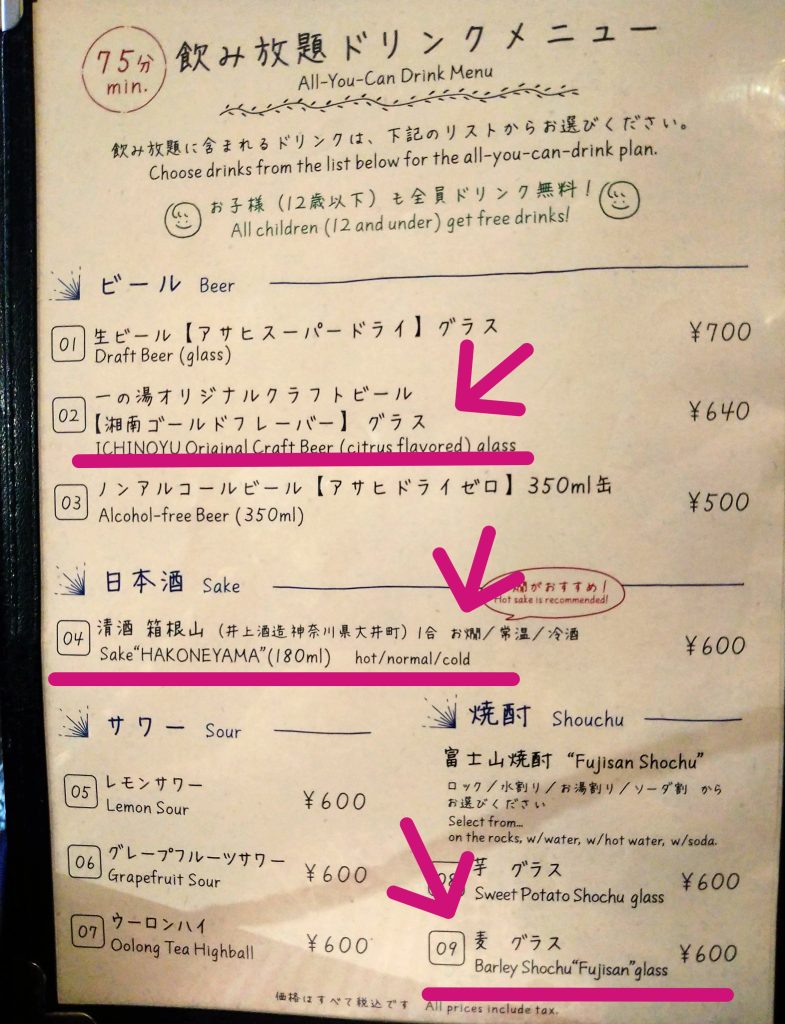 75分
min.
飲み放題ドリンクメニュー
All-You-Can Drink Menu
飲み放題に含まれるドリンクは、下記のリストからお選びください。
Choose drinks from the list below for the all-you-can-drink plan.
お子様（12歳以下）も全員ドリンク無料！
All children (12 and under) get free drinks!
ビール Beer
01 生ビール【アサヒスーパードライ】グラス ¥700
Draft Beer (glass)
02 一の湯オリジナルクラフトビール
【湘南ゴールドフレーバー】 グラス ¥640
ICHINOYU Original Craft Beer (citrus flavored) glass
03 ノンアルコールビール【アサヒドライゼロ】350ml缶 ¥500
Alcohol-free Beer (350ml)
日本酒 Sake
燗がおすすめ！
Hot sake is recommended!
04 清酒 箱根山 （井上酒造 神奈川県大井町）1合 お燗／常温／冷酒 ¥600
Sake“HAKONEYAMA”(180ml) hot/normal/cold
サワー Sour
05 レモンサワー ¥600
Lemon Sour
06 グレープフルーツサワー ¥600
Grapefruit Sour
07 ウーロンハイ ¥600
Oolong Tea Highball
焼酎 Shouchu
富士山焼酎 “Fujisan Shochu”
ロック／水割り／お湯割り／ソーダ割 から
お選びください
Select from...
on the rocks, w/water, w/hot water, w/soda.
08 芋 グラス ¥600
Sweet Potato Shochu glass
09 麦 グラス ¥600
Barley Shochu“Fujisan”glass
価格はすべて税込です All prices include tax.